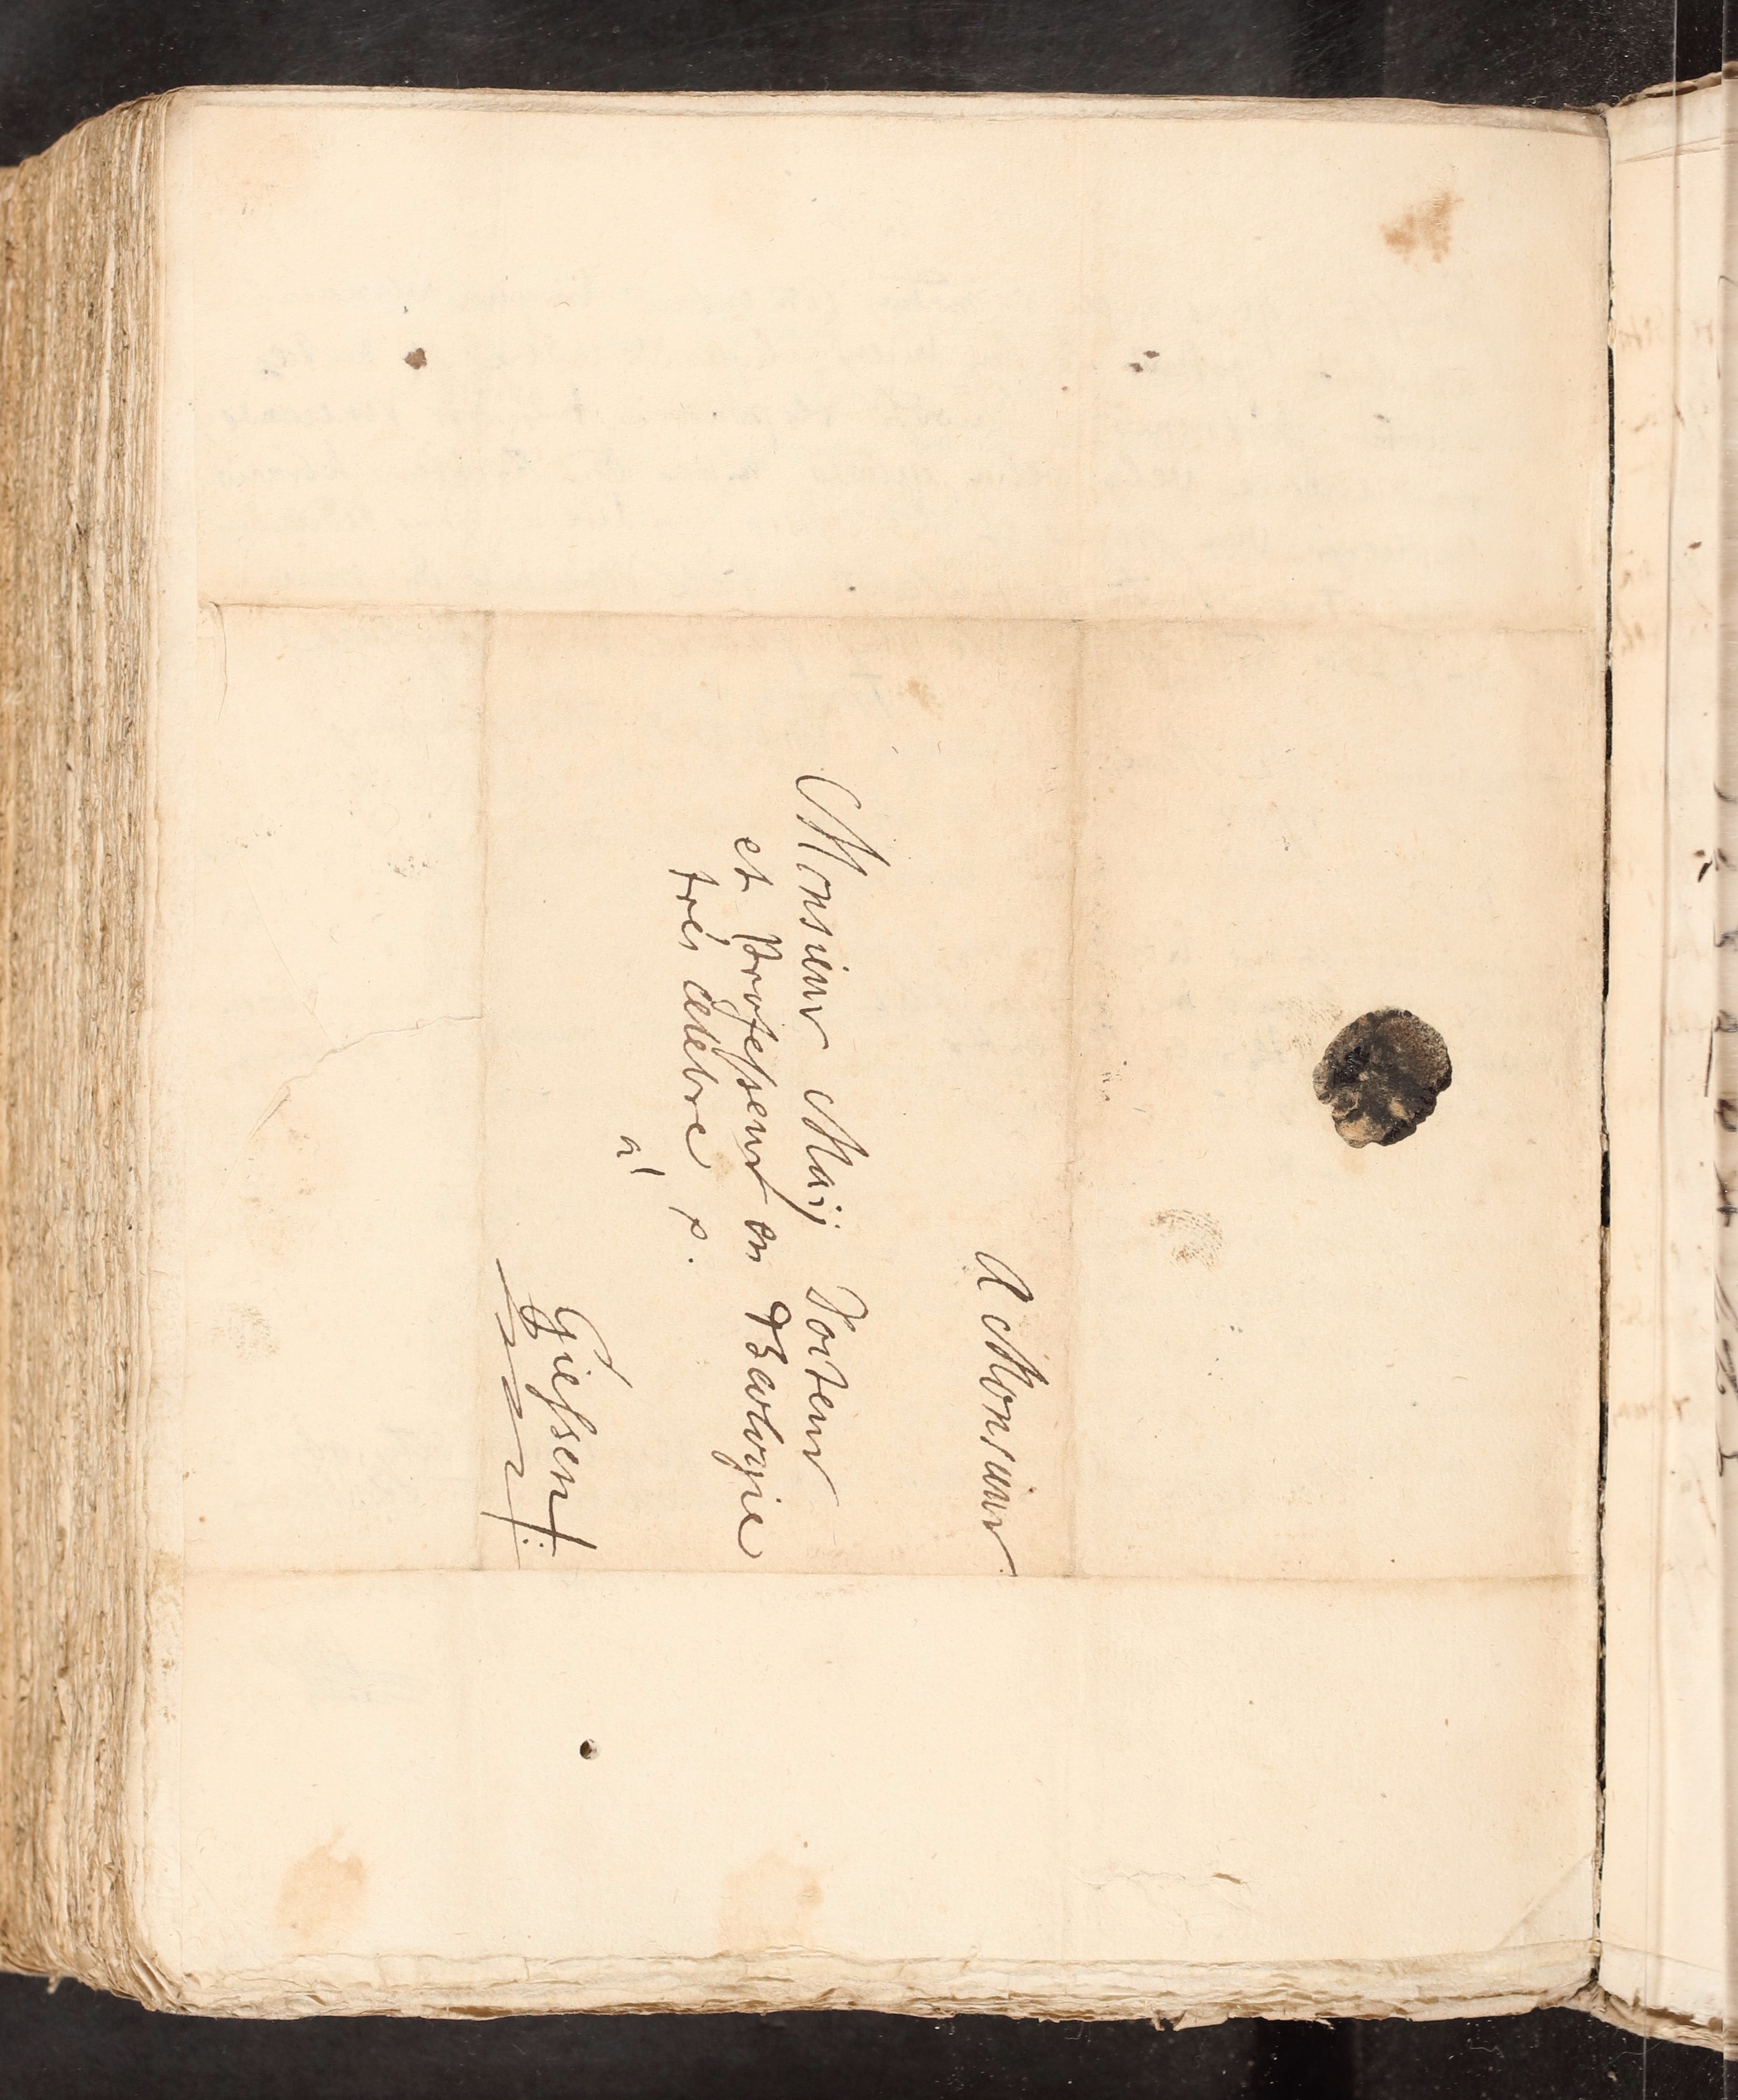 A Monsieur
Monsieur Maij Docteur
et Professeur en Theologie
trés celebre p.
à
Giessen /: